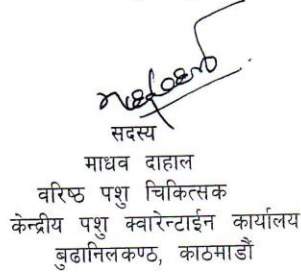 सदस्य
माधव दाहाल
वरिष्ठ पशु चिकित्सक
केन्द्रीय पशु क्वारेन्टाईन कार्यालय
बुढानिलकण्ठ, काठमाडौं